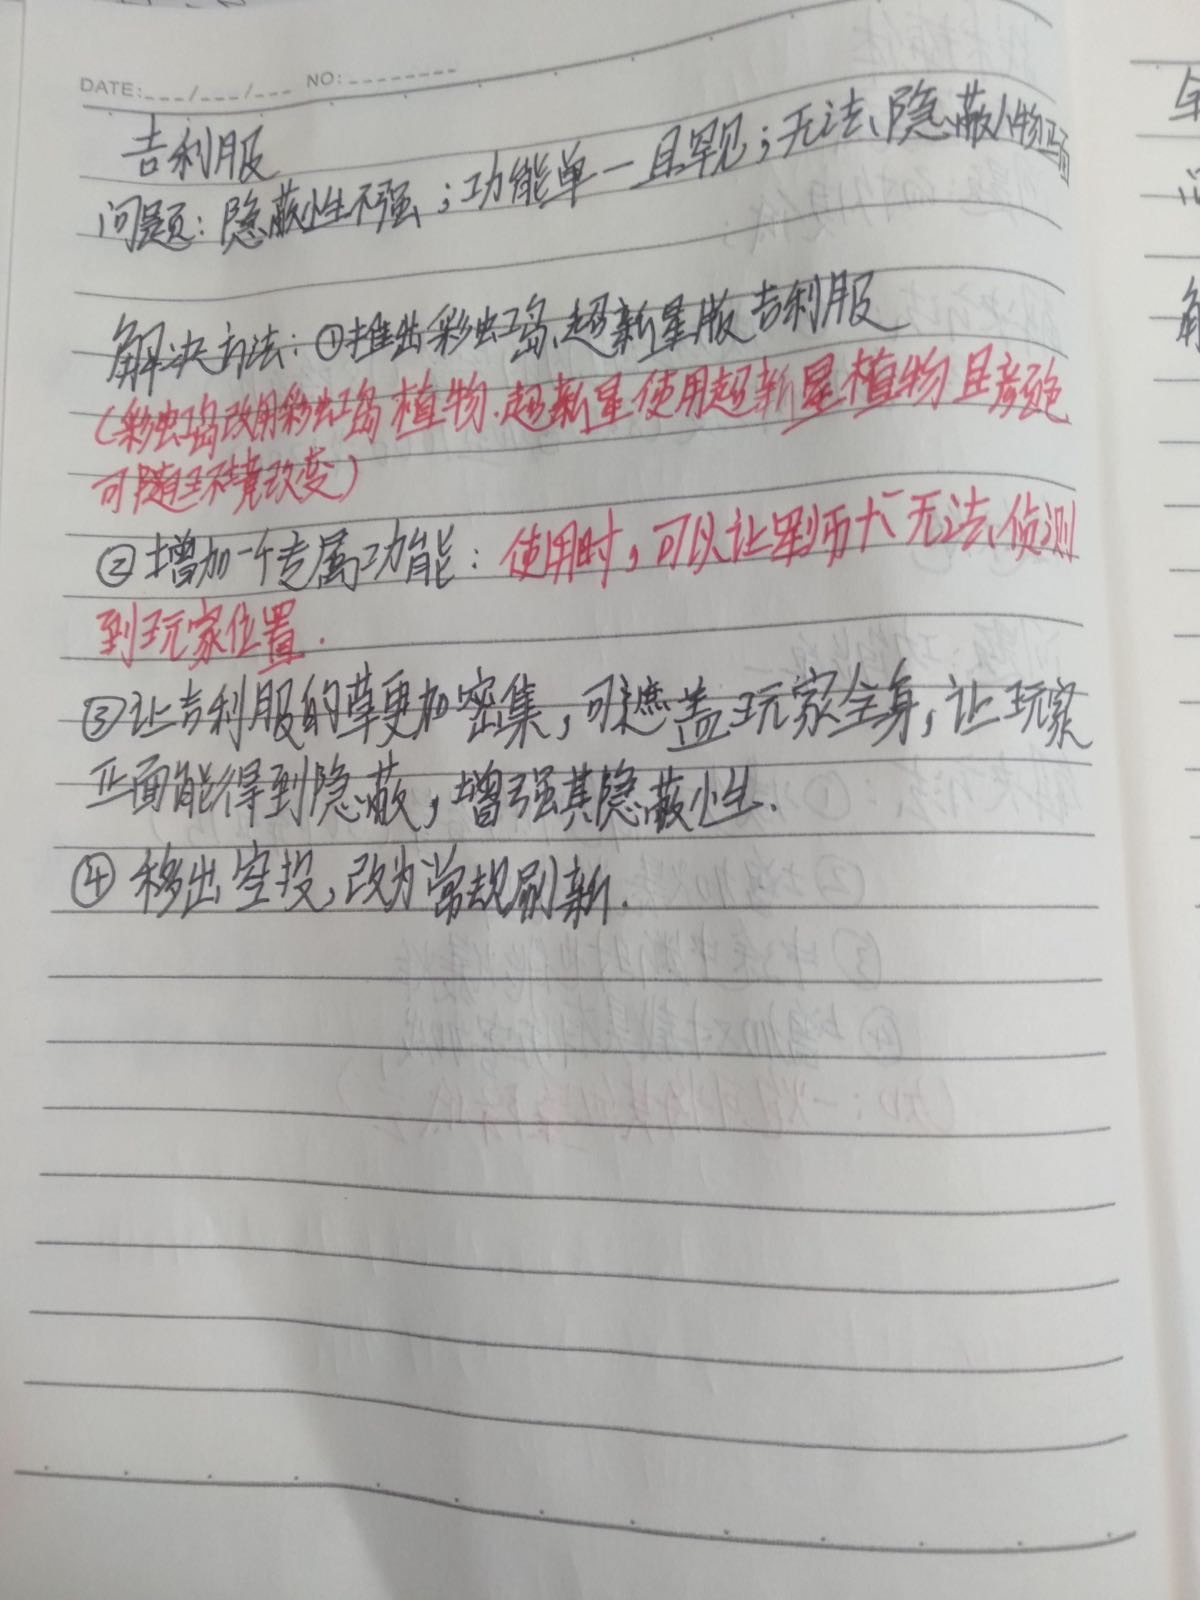 DATE:___/___/___ NO:________
吉利服
问题：隐蔽性不强；功能单一且罕见；无法隐蔽人物正面
解决方法：①推出彩虹岛、超新星版吉利服
（彩虹岛改用彩虹岛植物.超新星使用超新星植物且颜色
可随环境改变）
②增加一个专属功能：使用时，可以让军师大厂无法侦测
到玩家位置.
③让吉利服的草更加密集，可遮盖玩家全身，让玩家
正面能得到隐蔽，增强其隐蔽性.
④移出空投，改为常规刷新.